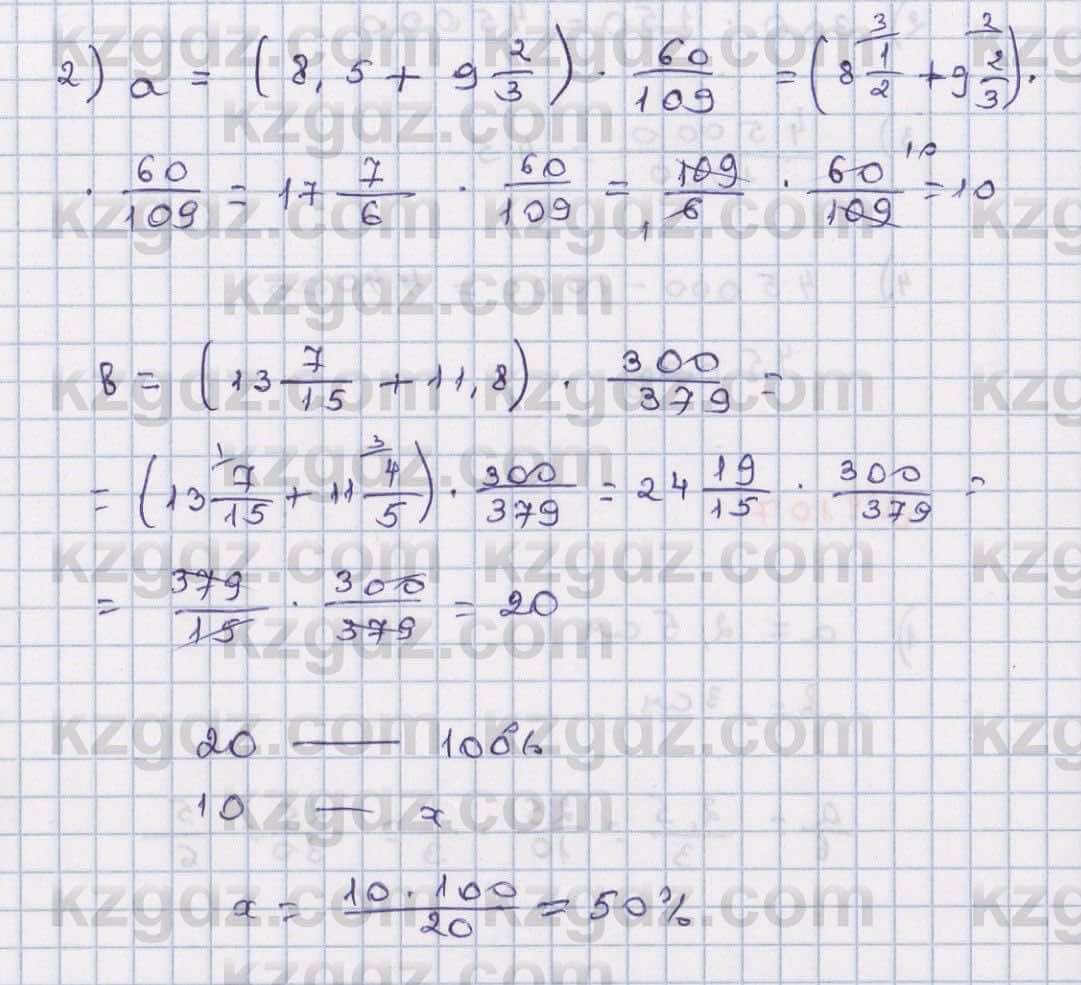 2) a = (8,5 + 9 2/3) · 60/109 = (8 1/2 + 9 2/3) ·
· 60/109 = 17 7/6 · 60/109 = 109/6 · 60/109 = 10
в = (13 7/15 + 11,8) · 300/379 =
= (13 7/15 + 11 4/5) · 300/379 = 24 19/15 · 300/379 =
= 379/15 · 300/379 = 20
20 — 100%
10 — x
x = 10 · 100/20 = 50%
kzgdz.com